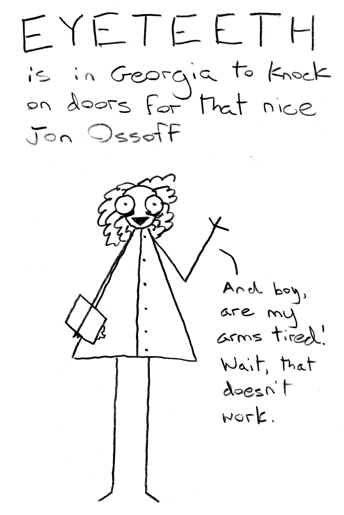 EYETEETH
is in Georgia to knock
on doors for that nice
Jon Ossoff
And boy,
are my
arms tired!
Wait, that
doesn't
work.